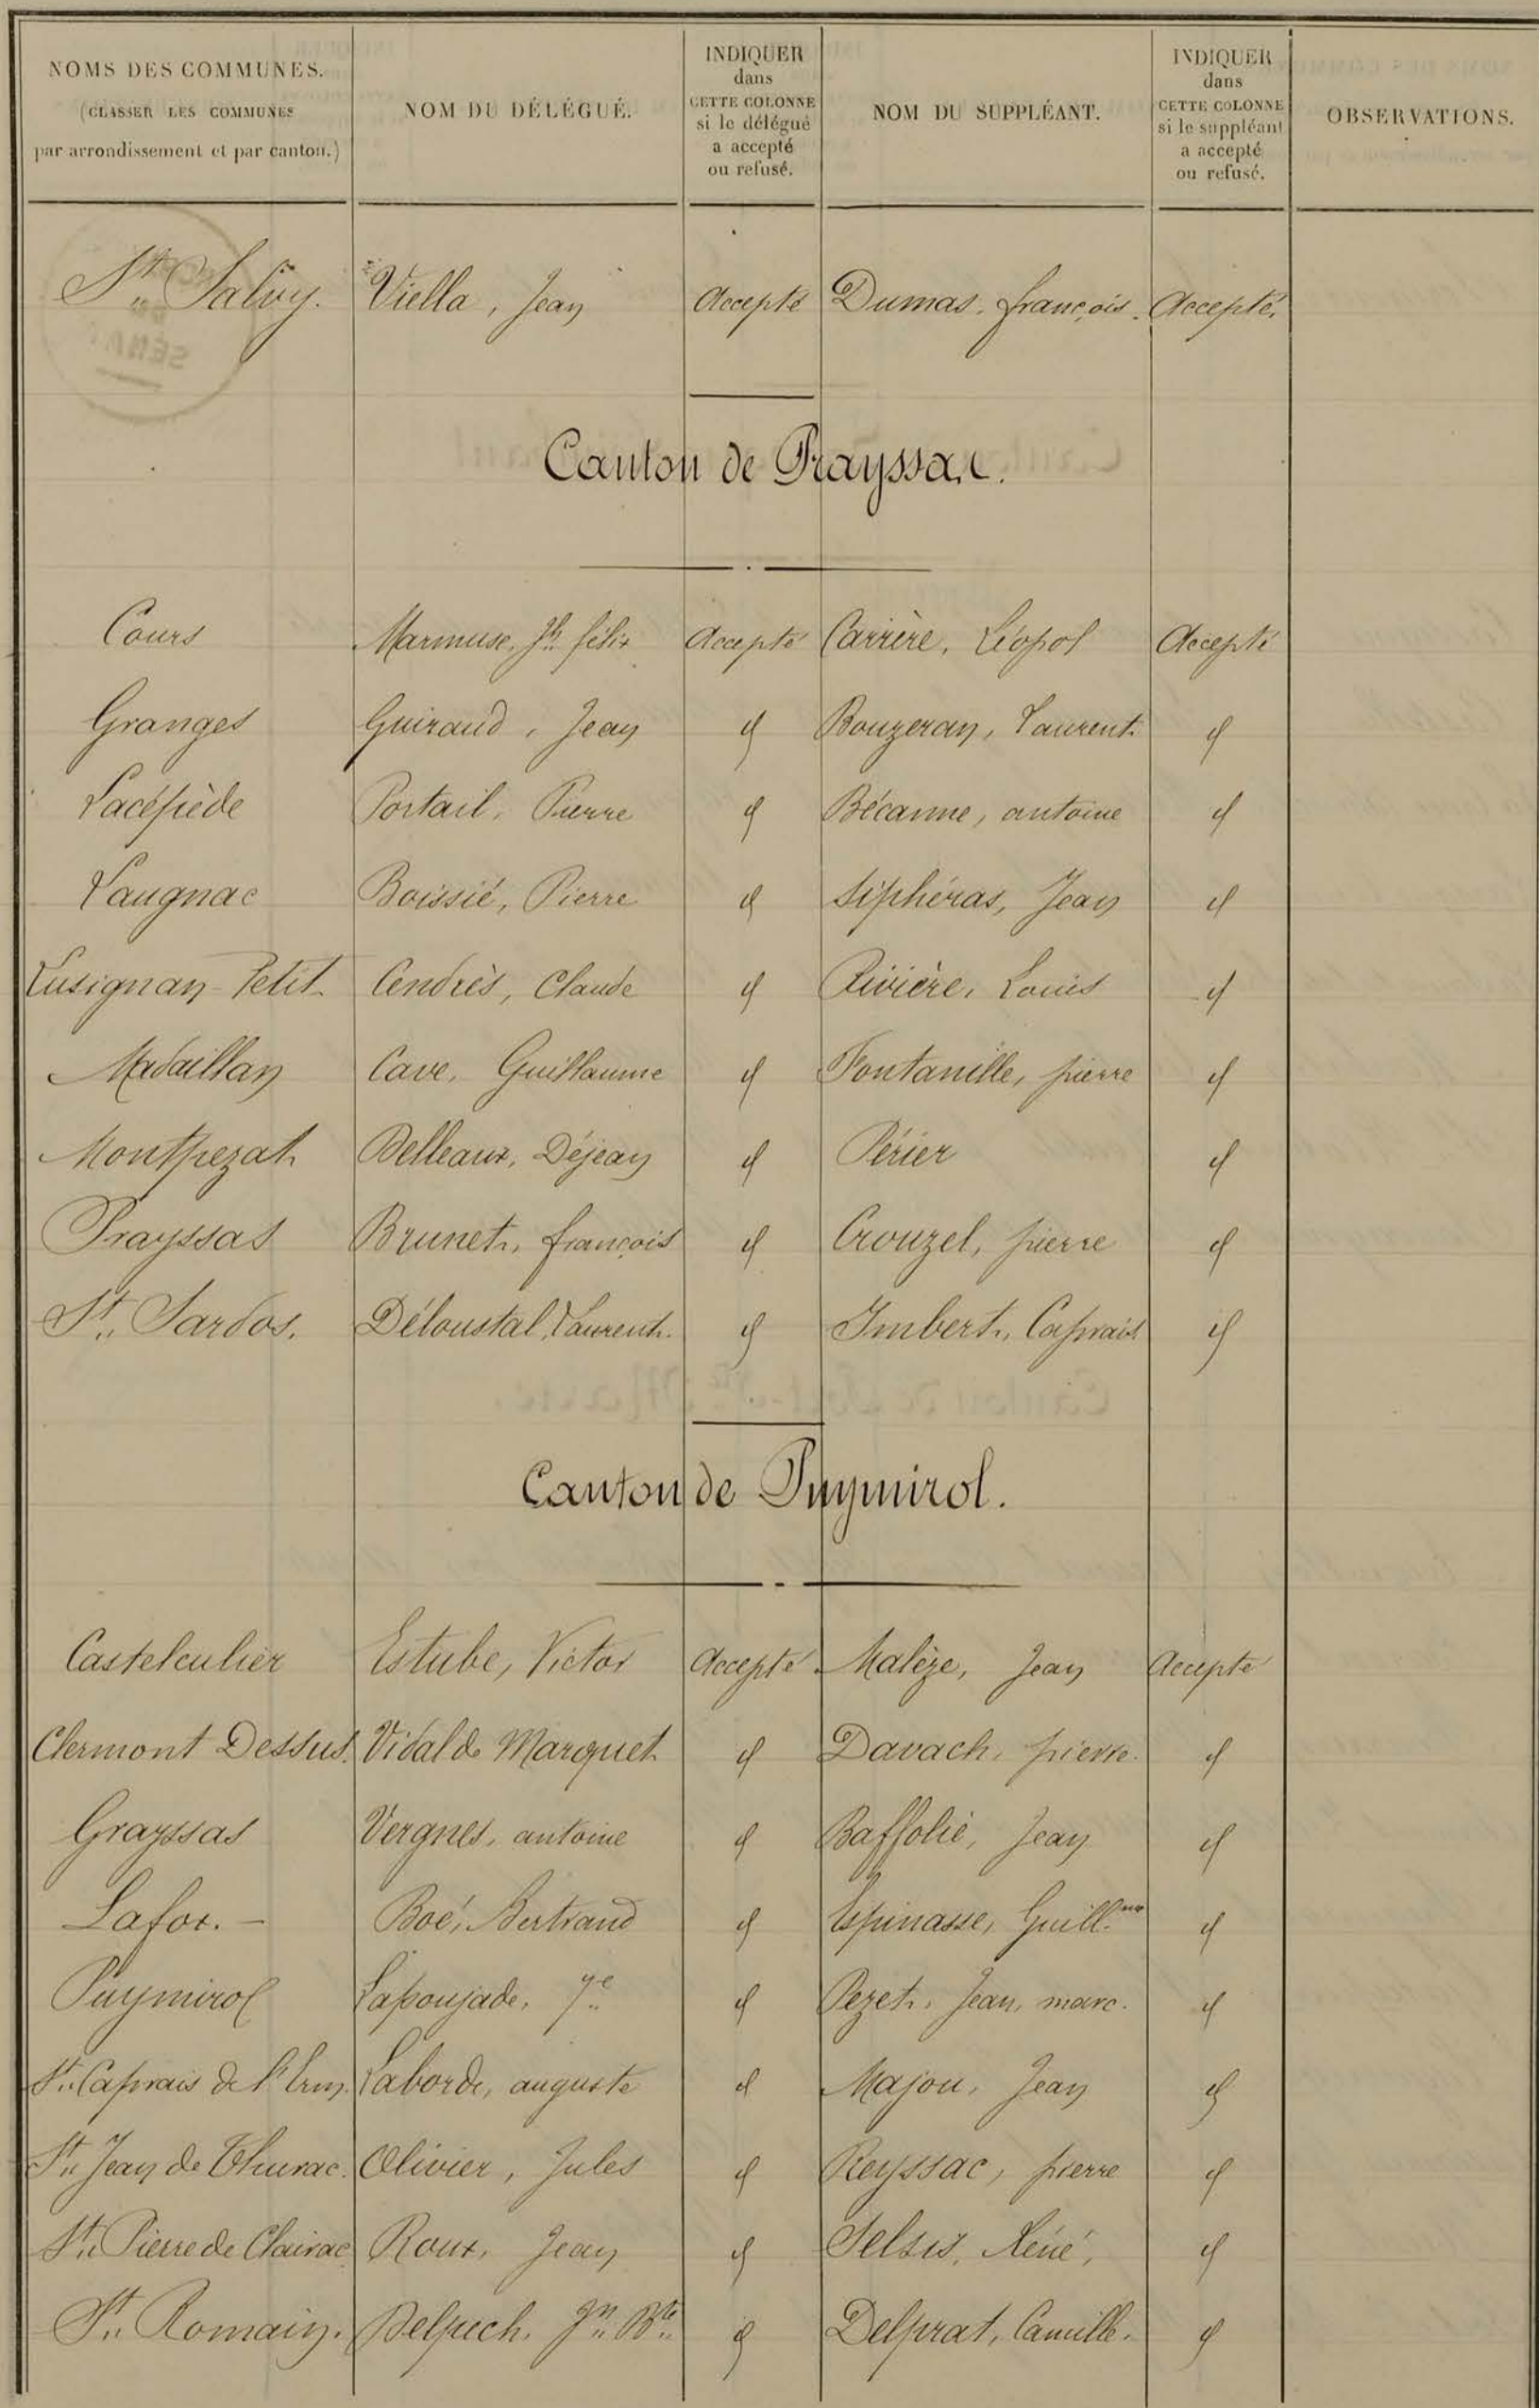 NOMS DES COMMUNES. (CLASSER LES COMMUNES par arrondissement et par canton.) NOM DU DÉLÉGUÉ. INDIQUER dans CETTE COLONNE si le délégué a accepté ou refusé. NOM DU SUPPLÉANT. INDIQUER dans CETTE COLONNE si le suppléant a accepté ou refusé. OBSERVATIONS.
St Salvy. Viella, Jean Accepté Dumas, françois. Accepté.
Canton de Prayssac.
Cours Marmuse, Jh félix Accepté Carrère, Léopol Accepté
Granges Guiraud, Jean d Bouzeran, Laurent d
Lacépède Portail, Pierre d Bécanne, antoine d
Laugnac Boissié, Pierre d Siphéras, Jean d
Lusignan-Petit Cendrès, Claude d Rivière, Louis d
Madaillan Cave, Guillaume d Fontanille, pierre d
Montpezat Belleaux, Déjean d Périer d
Prayssas Brunet, françois d Crouzel, pierre d
St Sardos. Déloustal, Laurent. d Imbert, Caprais d
Canton de Puymirol.
Castelculier Estube, Victor Accepté Malèze, Jean Accepté
Clermont Dessus. Vidal de Marquet d Davach, pierre. d
Grayssas Vergnes, antoine d Baffolié, Jean d
Lafox. - Boé, Bertrand d Espinasse, Guill.me d
Puymirol Lapoujade, d Pezet, Jean, marc. d
St Caprais de l'Erm. Laborde, auguste d Majou, Jean d
St Jean de Thurac. Olivier, Jules d Reyssac, pierre d
St Pierre de Clairac Roux, Jean d Selsis, Réné, d
St Romain. Delpech, Jn Bte d Delprat, Camille. d